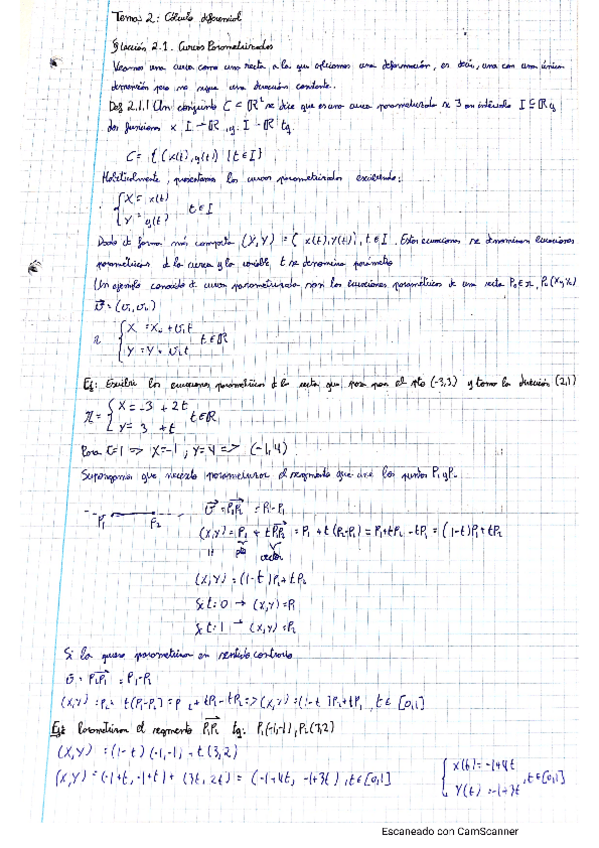 Tema 2: Cálculo diferencial
Sección 2.1. Curvas Parametrizadas
Veamos una curva como una recta a la que aplicamos una deformación, es decir, una con una única
dimensión pero no sigue una dirección constante.
Def 2.1.1 Un conjunto C ⊂ ℝ² se dice que es una curva parametrizada si ∃ un intervalo I ⊆ ℝ y
dos funciones x: I → ℝ, y: I → ℝ tq.
C = { (x(t), y(t)) | t ∈ I }
Habitualmente, presentamos las curvas parametrizadas escribiendo:
{ X = x(t)
Y = y(t) t ∈ I
Dada de forma más compacta (X,Y) = (x(t), y(t)), t ∈ I. Estas ecuaciones se denominan ecuaciones
paramétricas de la curva y la variable t se denomina parámetro
Un ejemplo conocido de curva parametrizada son las ecuaciones paramétricas de una recta P₀ ∈ r, P₀(X₀,Y₀)
v⃗ = (v₁, v₂)
r { X = X₀ + v₁t
Y = Y₀ + v₂t t ∈ ℝ
Ej: Escribir las ecuaciones paramétricas de la recta que pasa por el pto (-3,3) y toma la dirección (2,1)
r = { X = -3 + 2t
Y = 3 + t t ∈ ℝ
Para t=1 => X=-1; Y=4 => (-1,4)
Supongamos que necesito parametrizar el segmento que une los puntos P₁ y P₂
P₁ P₂ v⃗ = P₁P₂ = P₂ - P₁
(X,Y) = P₁ + tP₁P₂ = P₁ + t(P₂-P₁) = P₁ + tP₂ - tP₁ = (1-t)P₁ + tP₂
pto vector
(X,Y) = (1-t)P₁ + tP₂
Si t=0 → (X,Y) = P₁
Si t=1 → (X,Y) = P₂
Si la quiero parametrizar en sentido contrario
v⃗ = P₂P₁ = P₁-P₂
(X,Y) = P₂ + t(P₁-P₂) = P₂ + tP₁ - tP₂ => (X,Y) = (1-t)P₂ + tP₁, t ∈ [0,1]
Ej: Parametrizar el segmento P₁P₂ tq: P₁(-1,-1), P₂(3,2)
(X,Y) = (1-t)(-1,-1) + t(3,2)
(X,Y) = (-1+t, -1+t) + (3t, 2t) = (-1+4t, -1+3t), t ∈ [0,1]
{ x(t) = -1+4t
y(t) = -1+3t , t ∈ [0,1]
Escaneado con CamScanner